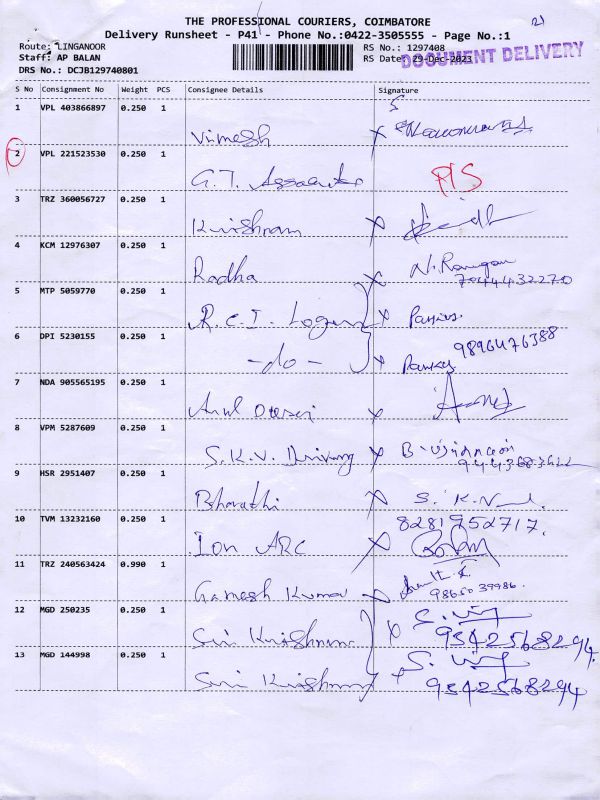 21
THE PROFESSIONAL COURIERS, COIMBATORE
Delivery Runsheet - P41 - Phone No.:0422-3505555 - Page No.:1
Route: LINGANOOR RS No.: 1297408
Staff: AP BALAN RS Date: 29-Dec-2023
DOCUMENT DELIVERY
DRS No.: DCJB129740801
S No Consignment No Weight PCS Consignee Details Signature
1 VPL 403866897 0.250 1
Vimesh x
2 VPL 221523530 0.250 1
G.T. Associates P/S
3 TRZ 360056727 0.250 1
Krishnam x
4 KCM 12976307 0.250 1
Radha x N. Rangan
7044432270
5 MTP 5059770 0.250 1
R.C.I. x
6 DPI 5230155 0.250 1
-do- x 9896476388
7 NDA 905565195 0.250 1
Arul x
8 VPM 5287609 0.250 1
S.K.V. x
9 HSR 2951407 0.250 1
Bharathi x S. K.
10 TVM 13232160 0.250 1 8281952717.
Ion ARC x
11 TRZ 240563424 0.990 1
Ganesh Kumar x
12 MGD 250235 0.250 1
Sri Krishnam x 9542568294.
13 MGD 144998 0.250 1
Sri Krishnam x 9542568294